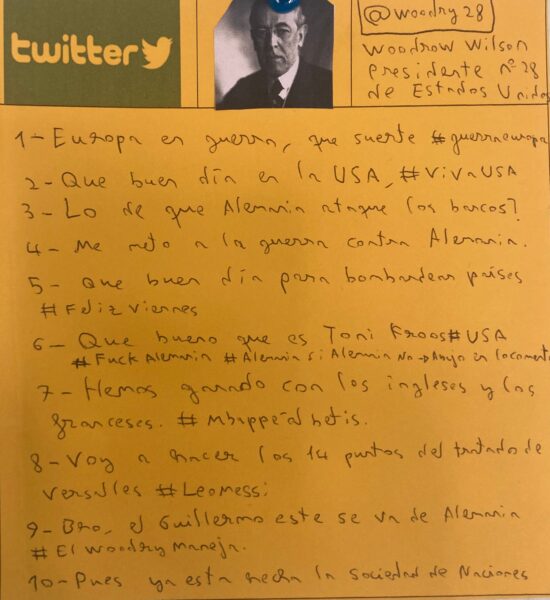 twitter
@woodry28
Woodrow Wilson
Presidente nº 28
de Estados Unidos
1- Europa en guerra, que suerte #guerraeuropa
2- Que buen día en la USA, #VivaUSA
3- Lo de que Alemania ataque los barcos?
4- Me meto a la guerra contra Alemania.
5- Que buen día para bombardear países
#Feliz Viernes
6- Que bueno que es Toni Kroos #USA
#Fuck Alemania #Alemania si Alemania No → en
7- Hemos ganado con los ingleses y los
franceses. #Mbappéalbetis.
8- Voy a hacer los 14 puntos del tratado de
Versalles #Leomessi
9- Bro, el Guillermo este se va de Alemania
#El woodry Maneja.
10- Pues ya esta hecha la Sociedad de Naciones